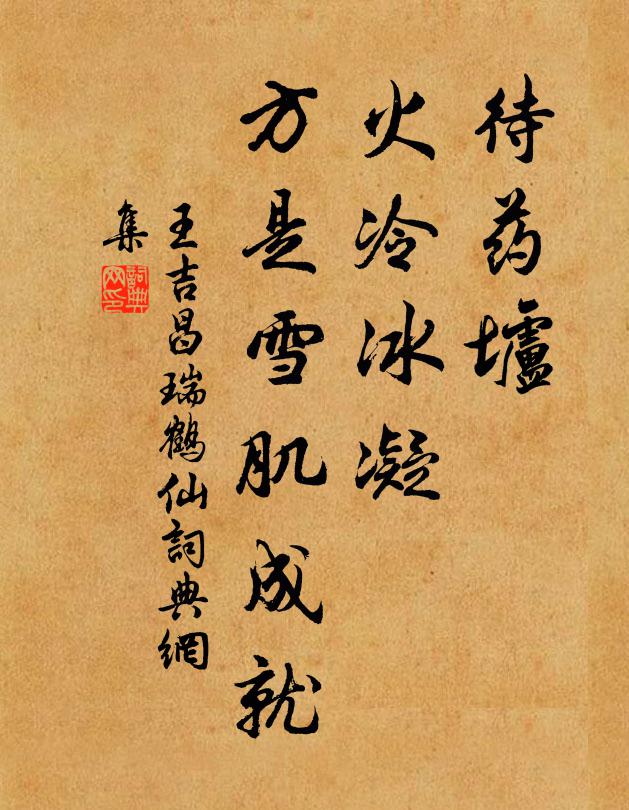 待药壚
火冷冰凝
方是雪肌成就
王吉昌瑞鶴仙詞典網
集
詞典
网印